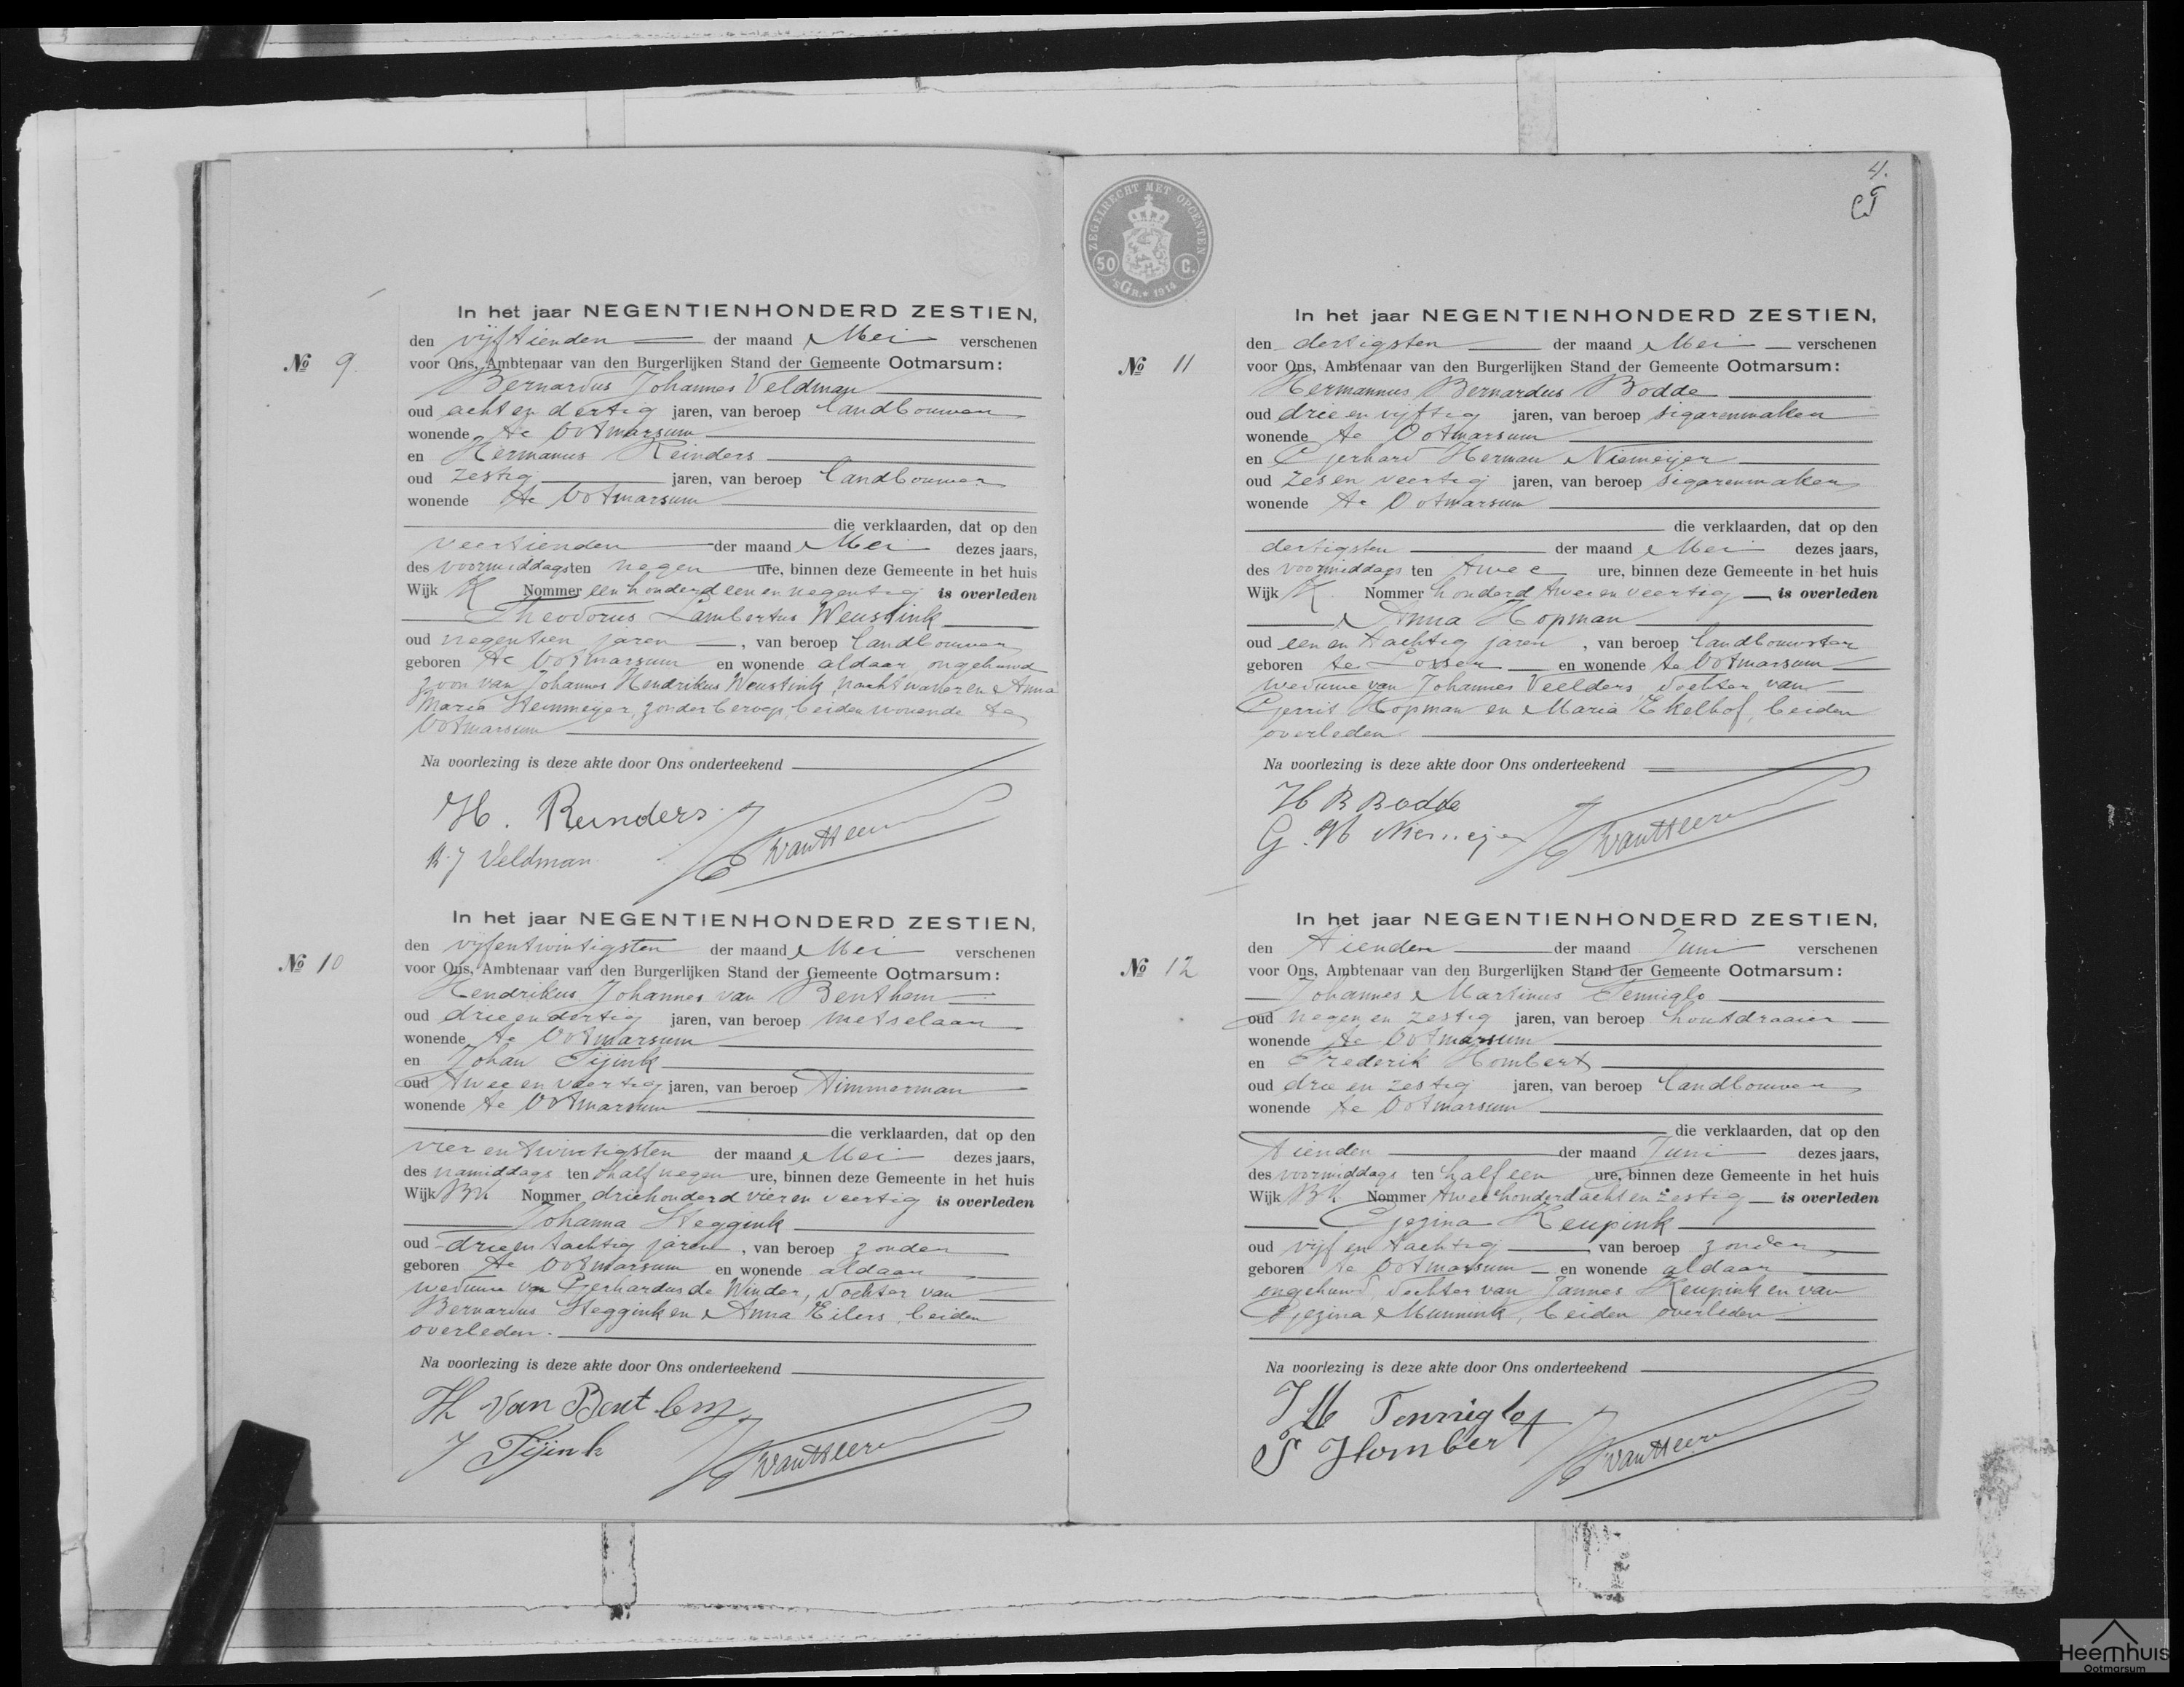 4.
ZEGELRECHT MET OPCENTEN
50 C.
'sGR. 1914
No 9.
In het jaar NEGENTIENHONDERD ZESTIEN,
den vijftienden der maand Mei verschenen
voor Ons, Ambtenaar van den Burgerlijken Stand der Gemeente Ootmarsum:
Bernardus Johannes Veldman
oud acht en dertig jaren, van beroep landbouwer
wonende te Ootmarsum
en Hermanus Reinders
oud zestig jaren, van beroep landbouwer
wonende te Ootmarsum
die verklaarden, dat op den
veertienden der maand Mei dezes jaars,
des voormiddags ten negen ure, binnen deze Gemeente in het huis
Wijk K Nommer een honderd een en negentig is overleden
Theodorus Lambertus Weustink
oud negentien jaren, van beroep landbouwer
geboren te Ootmarsum en wonende aldaar, ongehuwd
zoon van Johannes Hendrikus Weustink, nachtwaker en Anna
Maria Steinmeyer, zonder beroep, beiden wonende te
Ootmarsum
Na voorlezing is deze akte door Ons onderteekend
H. Reinders
B. J Veldman
No 10
In het jaar NEGENTIENHONDERD ZESTIEN,
den vijfentwintigsten der maand Mei verschenen
voor Ons, Ambtenaar van den Burgerlijken Stand der Gemeente Ootmarsum:
Hendrikus Johannes van Benthem
oud drie en dertig jaren, van beroep metselaar
wonende te Ootmarsum
en Johan Tijink
oud twee en veertig jaren, van beroep timmerman
wonende te Ootmarsum
die verklaarden, dat op den
vier en twintigsten der maand Mei dezes jaars,
des namiddags ten half negen ure, binnen deze Gemeente in het huis
Wijk Bk Nommer driehonderd vier en veertig is overleden
Johanna Steggink
oud drie en tachtig jaren, van beroep zonder
geboren te Ootmarsum en wonende aldaar
weduwe van Gerhardus de Winder, dochter van
Bernardus Steggink en Anna Eilers, beiden
overleden.
Na voorlezing is deze akte door Ons onderteekend
H van Benthem
J Tijink
No 11
In het jaar NEGENTIENHONDERD ZESTIEN,
den dertigsten der maand Mei verschenen
voor Ons, Ambtenaar van den Burgerlijken Stand der Gemeente Ootmarsum:
Hermannus Bernardus Bodde
oud drie en vijftig jaren, van beroep sigarenmaker
wonende te Ootmarsum
en Gerhard Herman Niemeijer
oud zes en veertig jaren, van beroep sigarenmaker
wonende te Ootmarsum
die verklaarden, dat op den
dertigsten der maand Mei dezes jaars,
des voormiddags ten twee ure, binnen deze Gemeente in het huis
Wijk K. Nommer honderd twee en veertig is overleden
Anna Hopman
oud een en tachtig jaren, van beroep landbouwster
geboren te Losser en wonende te Ootmarsum
weduwe van Johannes Veelders, dochter van
Gerrit Hopman en Maria Ekelhof, beiden
overleden
Na voorlezing is deze akte door Ons onderteekend
H B Bodde
G. H Niemeijer
No 12
In het jaar NEGENTIENHONDERD ZESTIEN,
den tienden der maand Juni verschenen
voor Ons, Ambtenaar van den Burgerlijken Stand der Gemeente Ootmarsum:
Johannes Martinus Tenniglo
oud negen en zestig jaren, van beroep houtdraaier
wonende te Ootmarsum
en Frederik Hombert
oud drie en zestig jaren, van beroep landbouwer
wonende te Ootmarsum
die verklaarden, dat op den
tienden der maand Juni dezes jaars,
des voormiddags ten half een ure, binnen deze Gemeente in het huis
Wijk Bk Nommer tweehonderd acht en zestig is overleden
Gezina Keupink
oud vijf en tachtig van beroep zonder
geboren te Ootmarsum en wonende aldaar
ongehuwd, dochter van Jannes Keupink en van
Gezina Munnink, beiden overleden.
Na voorlezing is deze akte door Ons onderteekend
J M Tenniglo
F Hombert
Heemhuis
Ootmarsum